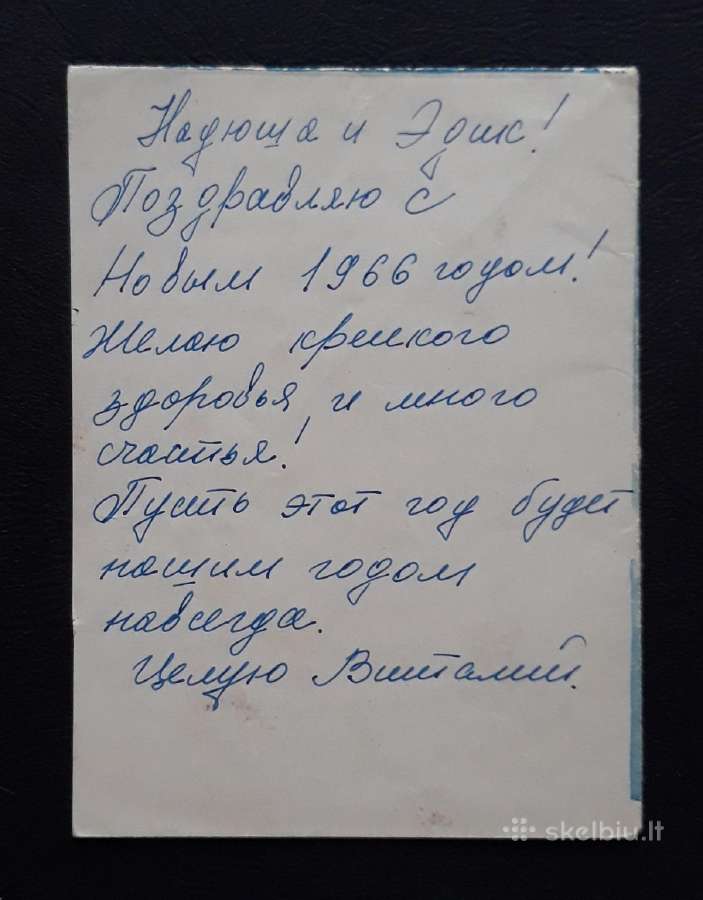 Надюша и Эдик!
Поздравляю с
Новым 1966 годом!
Желаю крепкого
здоровья и много
счастья!
Пусть этот год будет
нашим годом
навсегда.
Целую Виталий.
skelbiu.lt